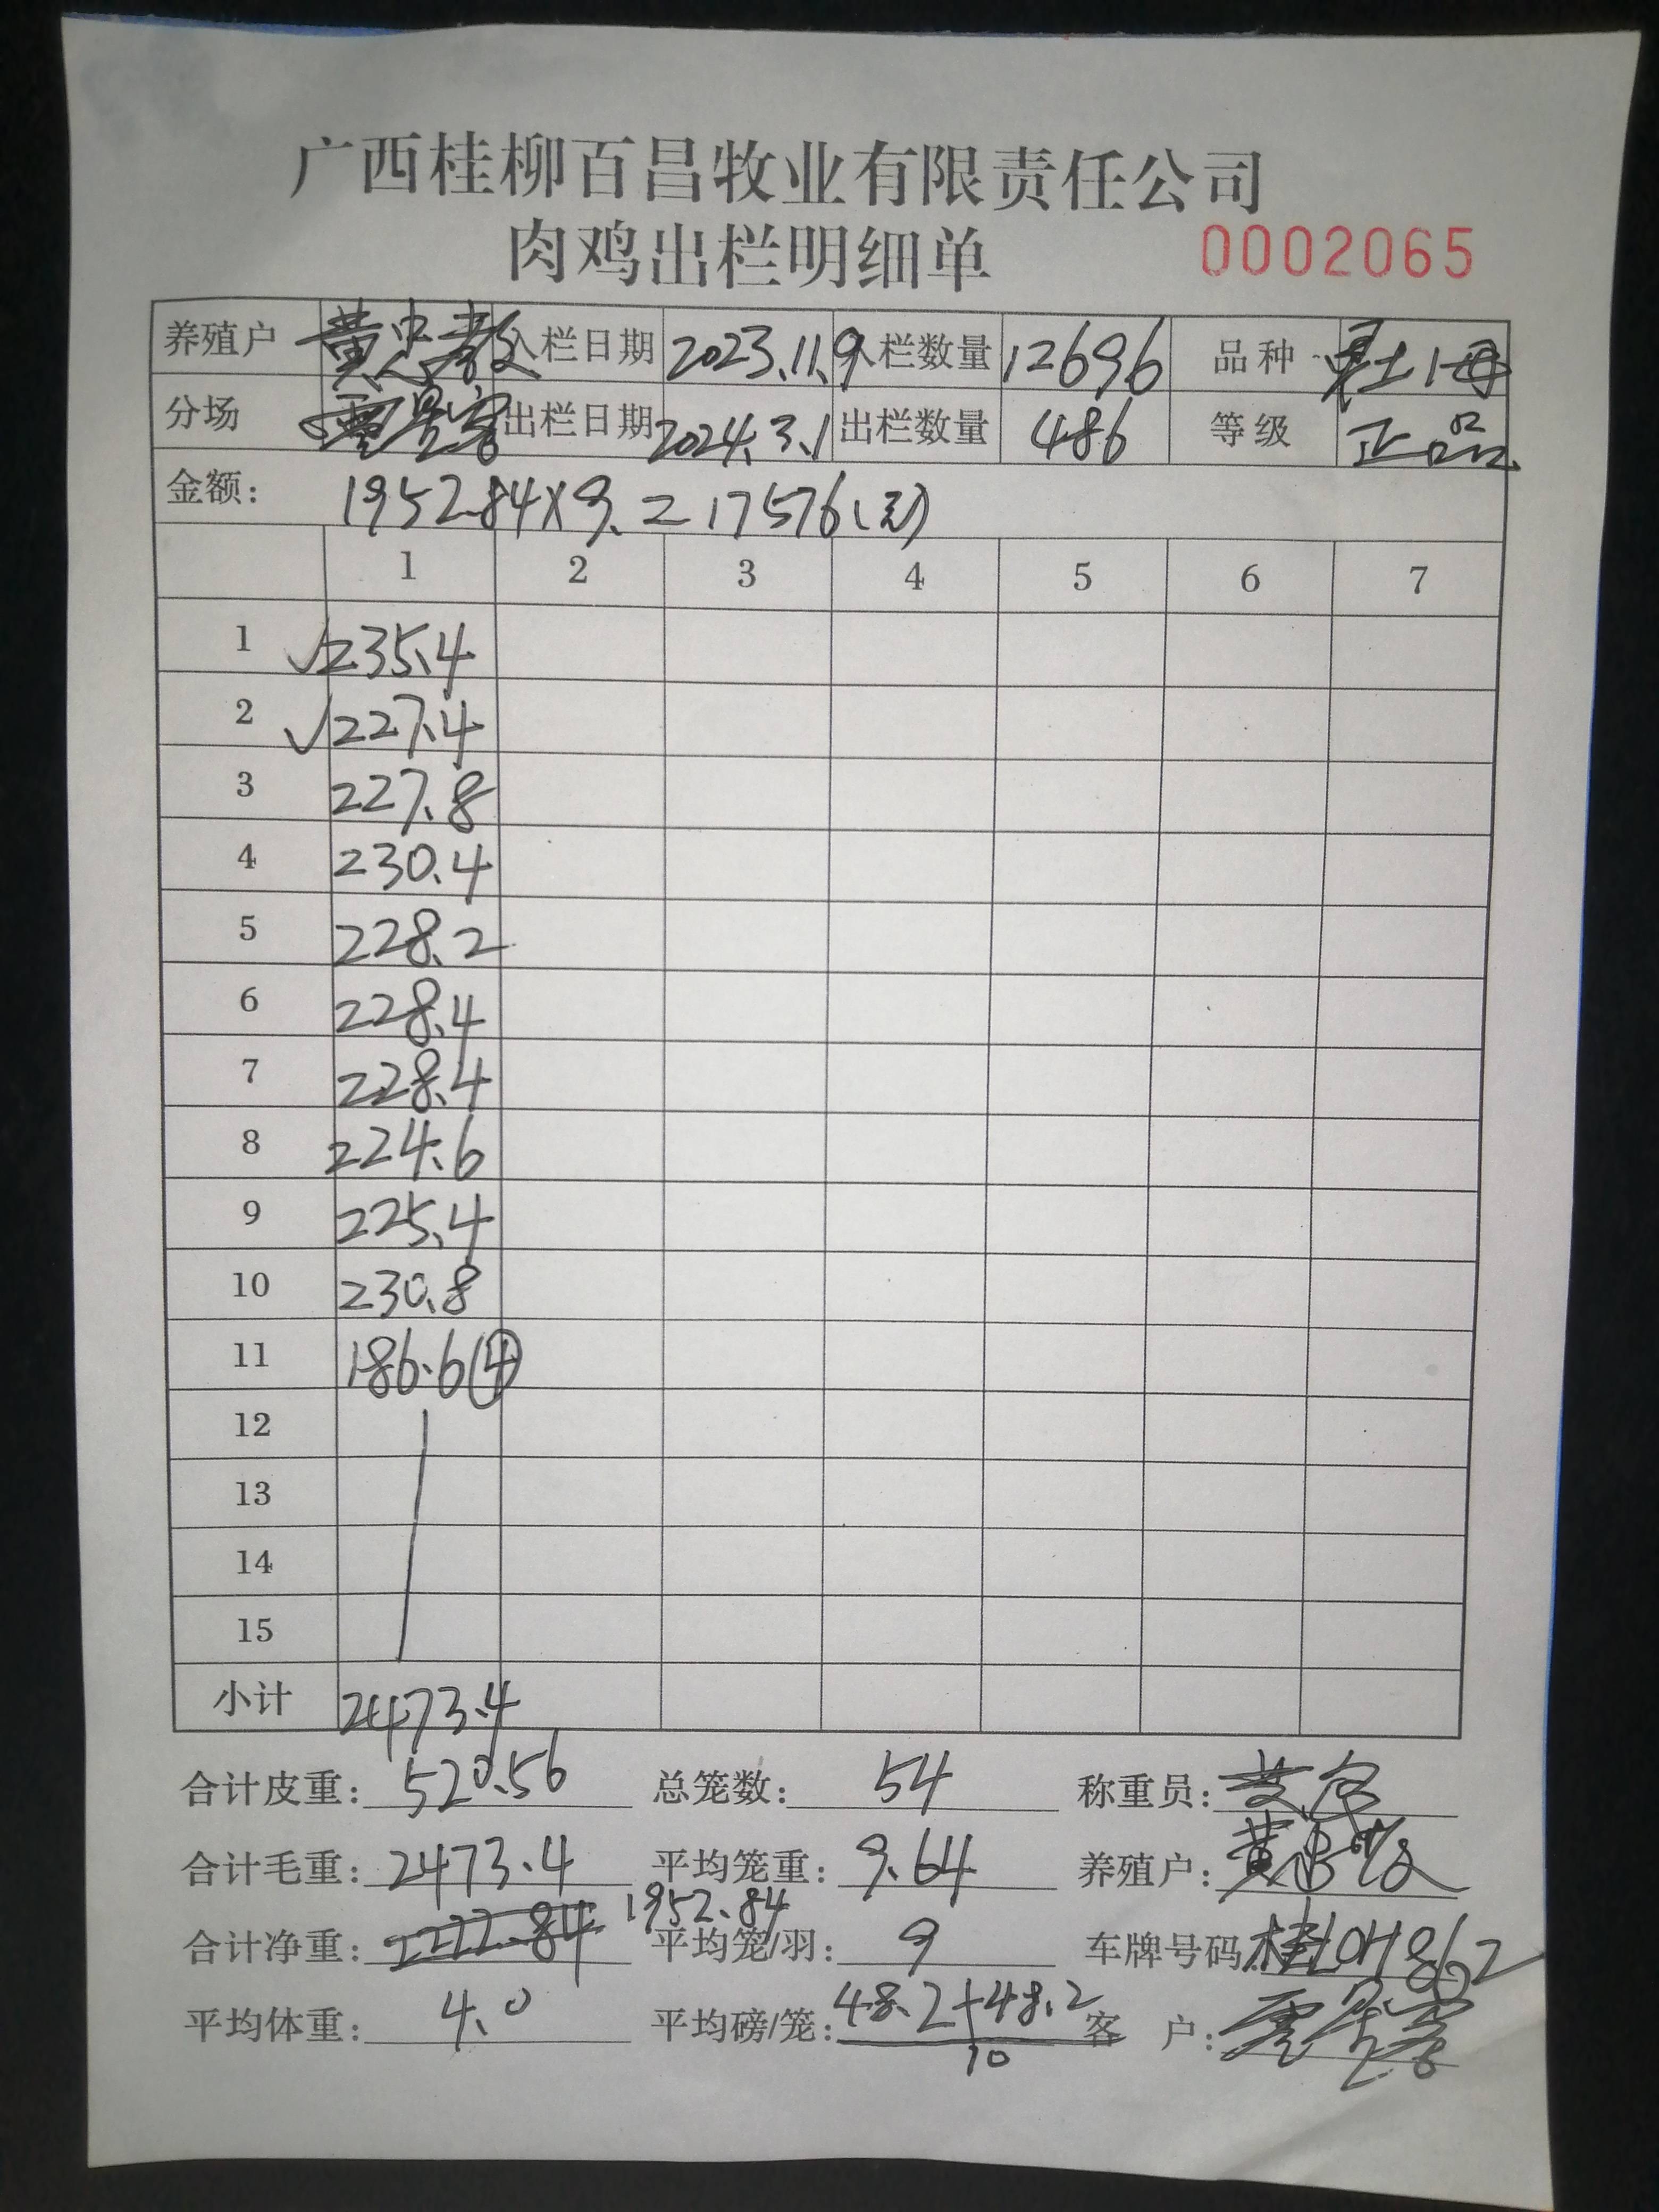 广西桂柳百昌牧业有限责任公司
肉鸡出栏明细单 0002065
养殖户 黄忠教 入栏日期 2023.11.9 入栏数量 12696 品种
分场 出栏日期 2024.3.1 出栏数量 486 等级 正品
金额: 1952.84×9.=17576(元)
1 2 3 4 5 6 7
1 √235.4
2 √227.4
3 227.8
4 230.4
5 228.2
6 228.4
7 228.4
8 224.6
9 225.4
10 230.8
11 186.6(4)
12
13
14
15
小计 2473.4
合计皮重: 520.56 总笼数: 54 称重员:
合计毛重: 2473.4 平均笼重: 9.64 养殖户:
合计净重: 2222.84 1952.84 平均笼/羽: 9 车牌号码:
平均体重: 4.0 平均磅/笼: 48.2+48.2 客 户:
10